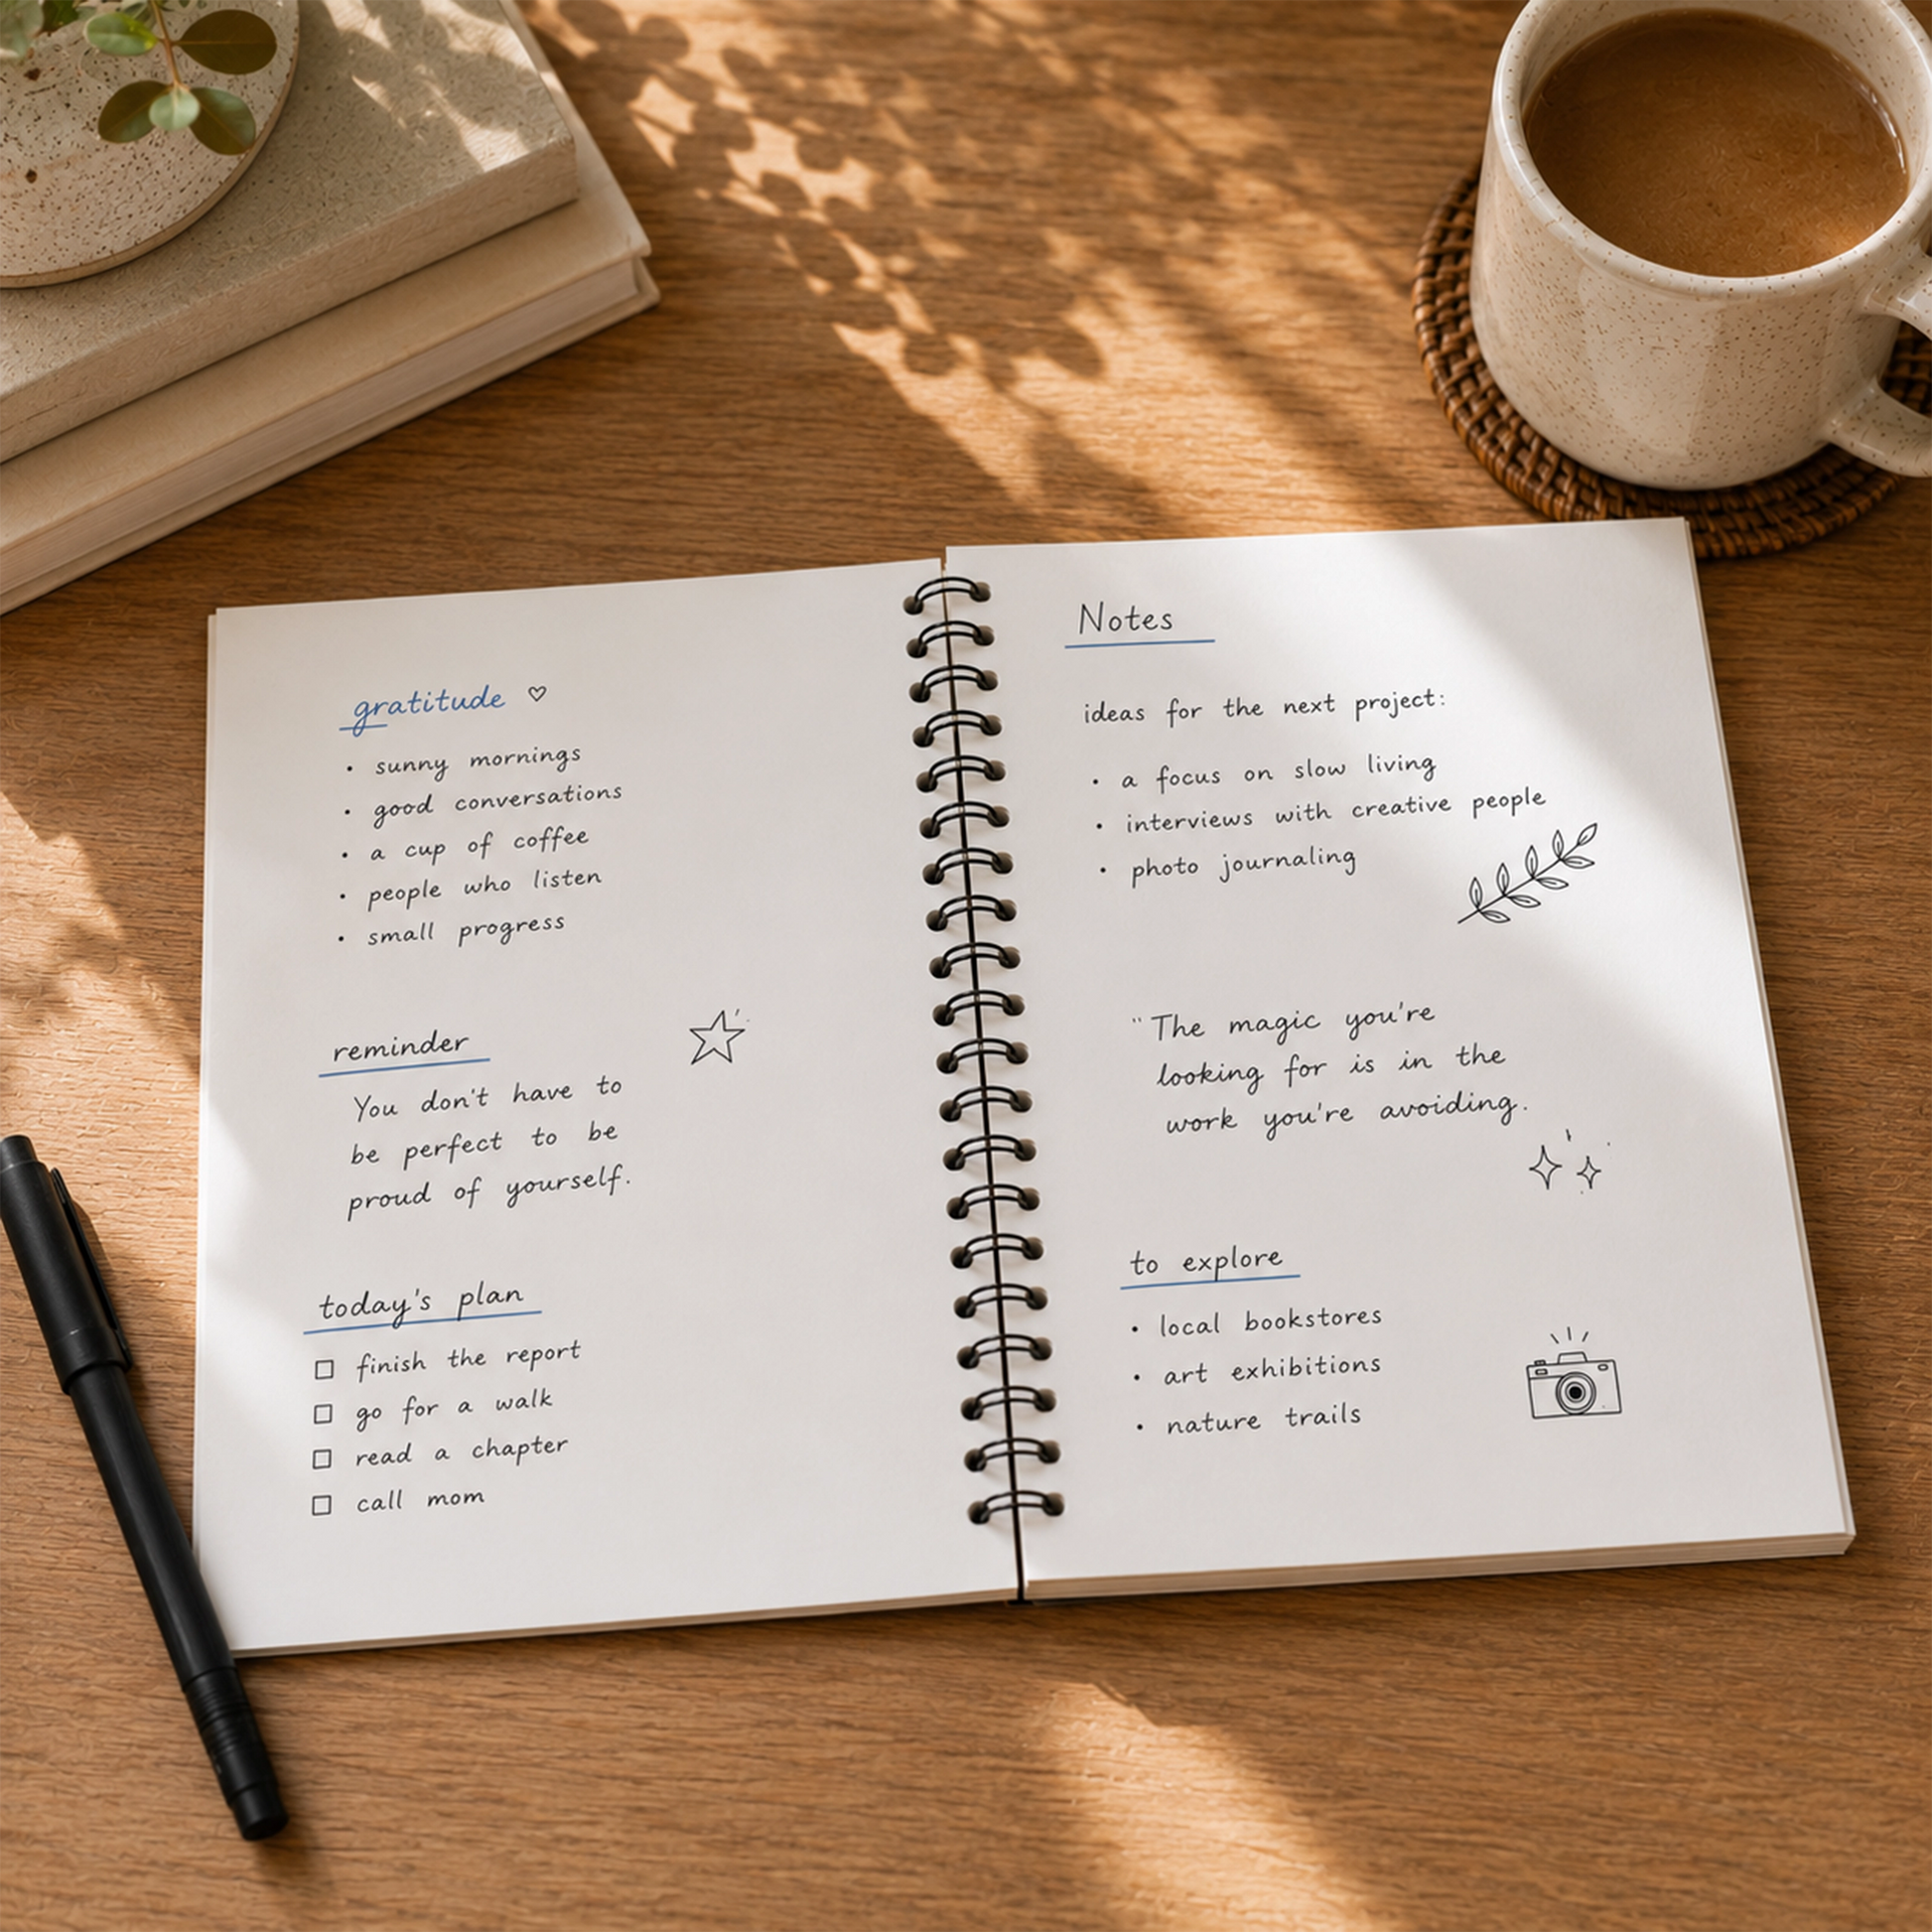 gratitude ♡
• sunny mornings
• good conversations
• a cup of coffee
• people who listen
• small progress
reminder
You don't have to
be perfect to be
proud of yourself.
today's plan
☐ finish the report
☐ go for a walk
☐ read a chapter
☐ call mom
Notes
ideas for the next project:
• a focus on slow living
• interviews with creative people
• photo journaling
"The magic you're
looking for is in the
work you're avoiding.
to explore
• local bookstores
• art exhibitions
• nature trails